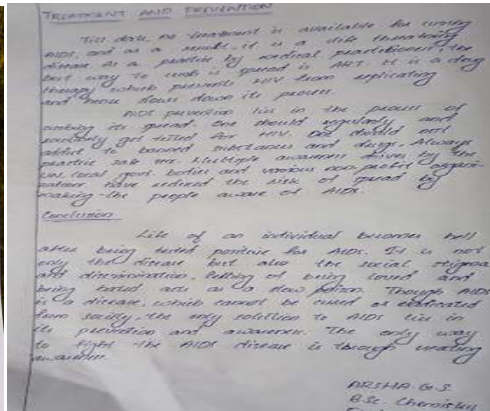 TREATMENT AND PREVENTION
Till date, no treatment is available for curing
AIDS, and as a result, it is a life threatening
disease. As a practice by medical practitioners, the
best way to curb its spread is ART. It is a drug
therapy which prevents HIV from replicating
and hence slows down its process.
AIDS prevention lies in the process of
its spread. One should regularly and
get tested for HIV. One should not
addict to banned substances and drugs. Always
practice safe sex. Multiple awareness drives by the
UN, local govt. bodies and various non-profit
have reduced the risk of spread by
making the people aware of AIDS.
Conclusion
Life of an individual becomes hell
after being tested positive for AIDS. It is not
only the disease but also the social stigma
and discrimination, being loved and
being hated acts as a slow poison. Though AIDS
is a disease, which cannot be cured or eradicated
from society, the only solution to AIDS lies in
its prevention and awareness. The only way
to fight the AIDS disease is through creating
awareness.
ARSHA G.S
B.Sc. Chemistry